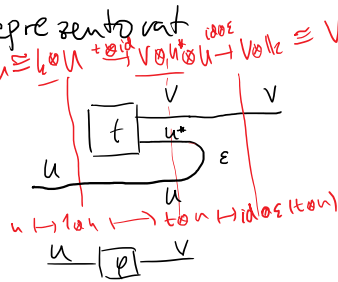 reprezentovat
u ≅ k⊗U —t⊗id→ V⊗U*⊗U —id⊗ε→ V⊗k ≅ V
V V
t u*
ε
U
u
u ↦ 1⊗u ↦ t⊗u ↦ id⊗ε(t⊗u)
U φ V